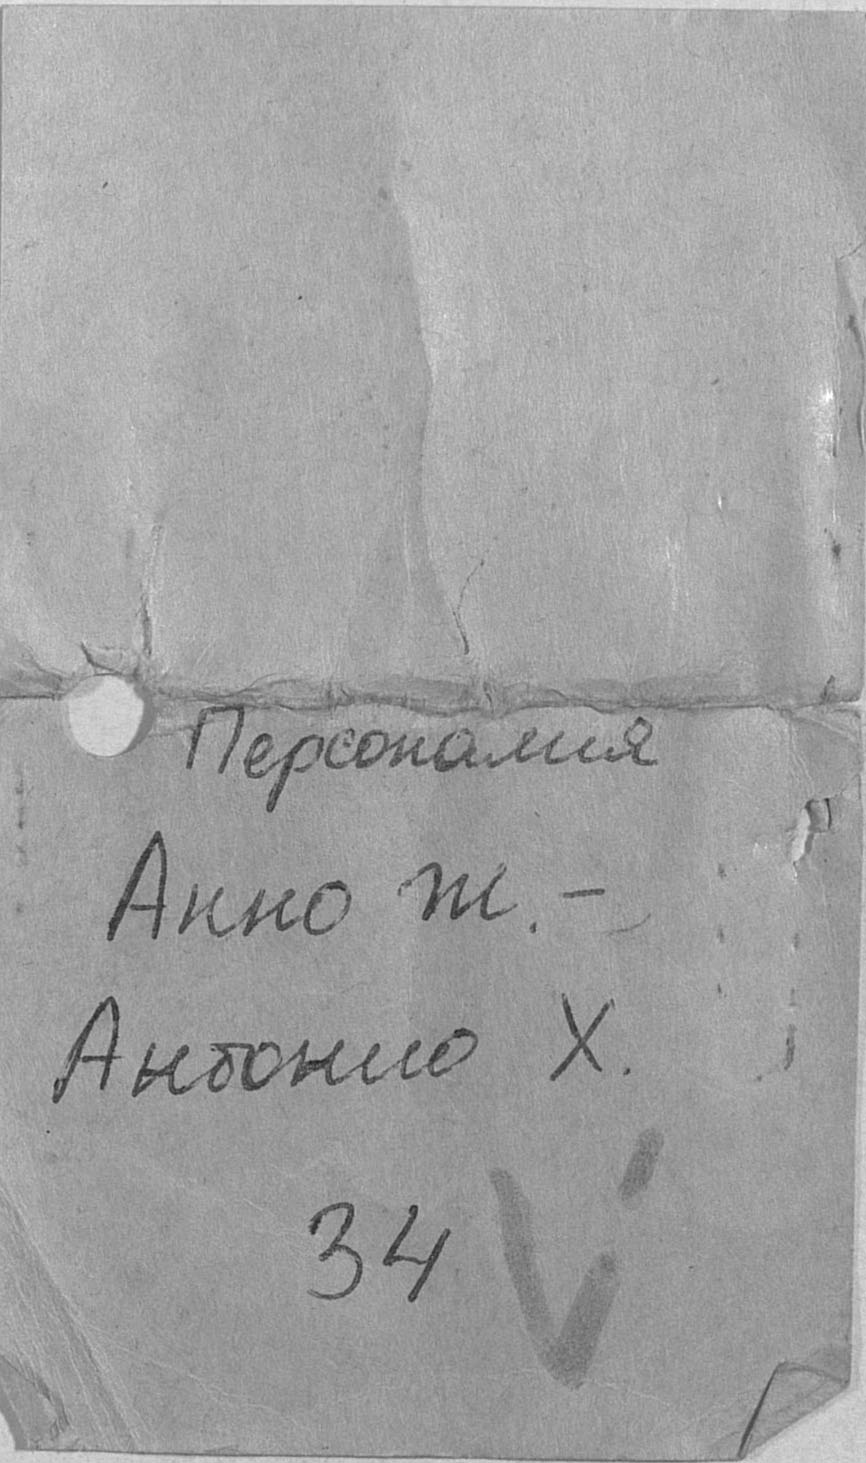 Персоналия
Анно Ж. -
Антонио Х.
34